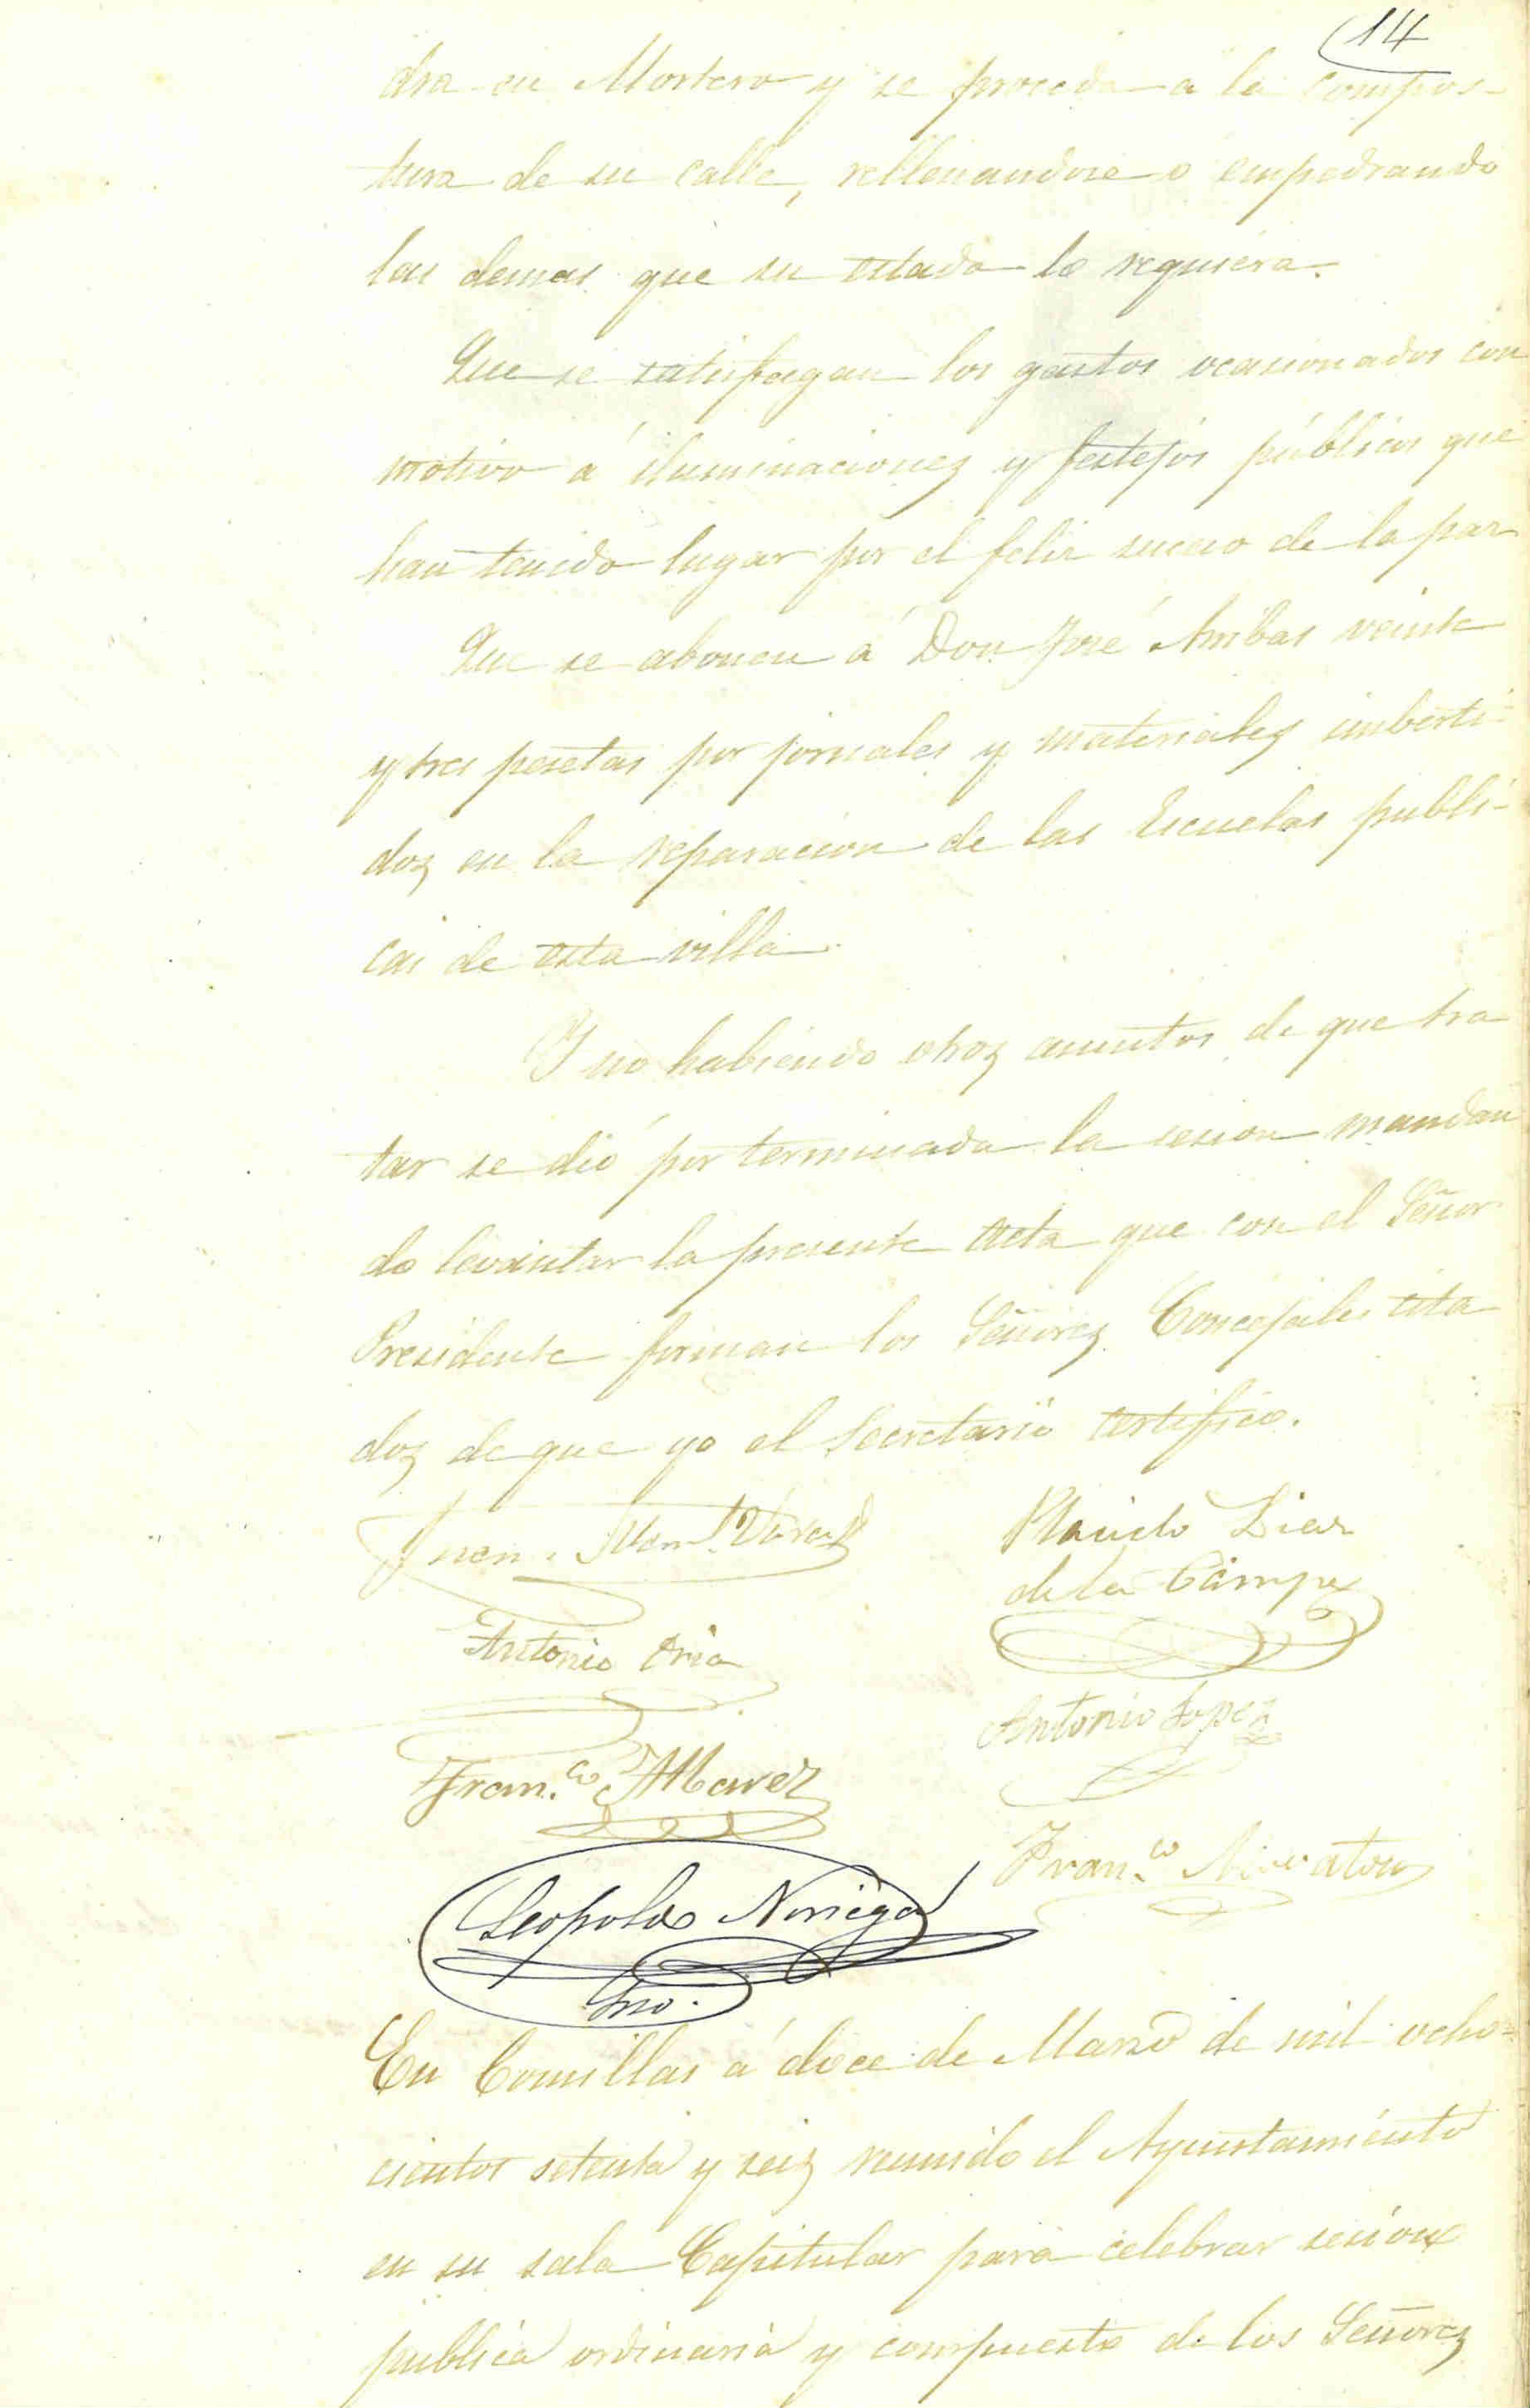 14
dra en Mortero y se proceda a la compos-
tura de su calle, rellenandose o empedrando
las demas que su estado lo requiera.
Que se satisfagan los gastos ocasionados con
motivo á iluminaciones y festejos públicos que
han tenido lugar por el feliz suceso de la paz
Que se abonen á Don José Arribas veinte
y tres pesetas por jornales y materiales imberti-
dos en la reparacion de las Escuelas publi-
cas de esta villa.
Y no habiendo otros asuntos de que tra
tar se dió por terminada la sesion mandan
do levantar la presente Acta que con el Señor
Presidente firman los Señores Concejales cita
dos de que yo el Secretario certifico.
Juan
Placido Diaz
de la Campa
Antonio Oria
Antonio Lopez
Fran.co Alvarez
Fran.co
Leopoldo Noriega
Srio.
En Comillas á doce de Marzo de mil ocho-
cientos setenta y seis reunido el Ayuntamiento
en su sala Capitular para celebrar sesion
publica ordinaria y compuesto de los Señores